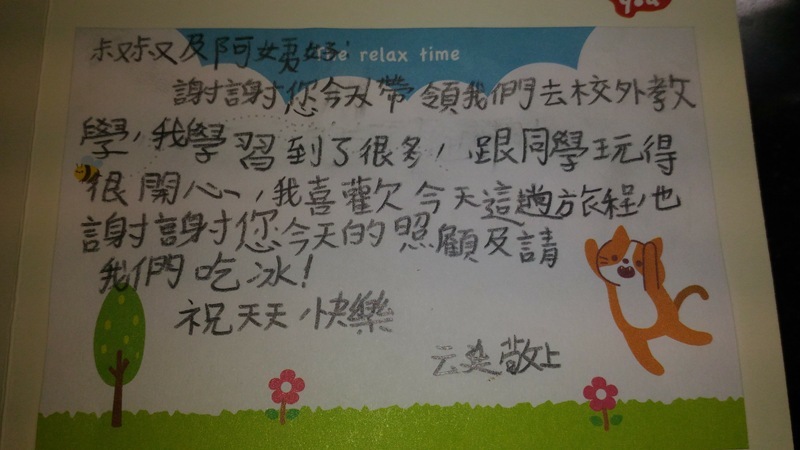 you
the relax time
叔叔及阿姨好:
謝謝您今天帶領我們去校外教
學,我學習到了很多,跟同學玩得
很開心,我喜歡今天這趟旅程,也
謝謝您今天的照顧及請
我們吃冰!
祝天天快樂
云奕敬上